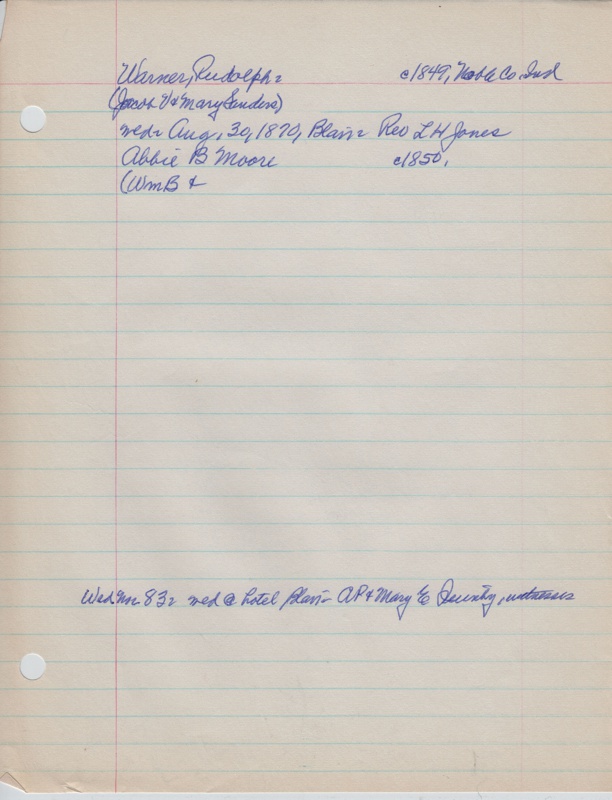 Warner, Rudolph: c1849, Noble Co. Ind
(Jacob V & Mary Sanders)
wed: Aug. 30, 1870, Blair: Rev L H Jones
Abbie B Moore c1850,
(Wm B &
Wed 83: wed @ hotel Blair AP & Mary E witnesses